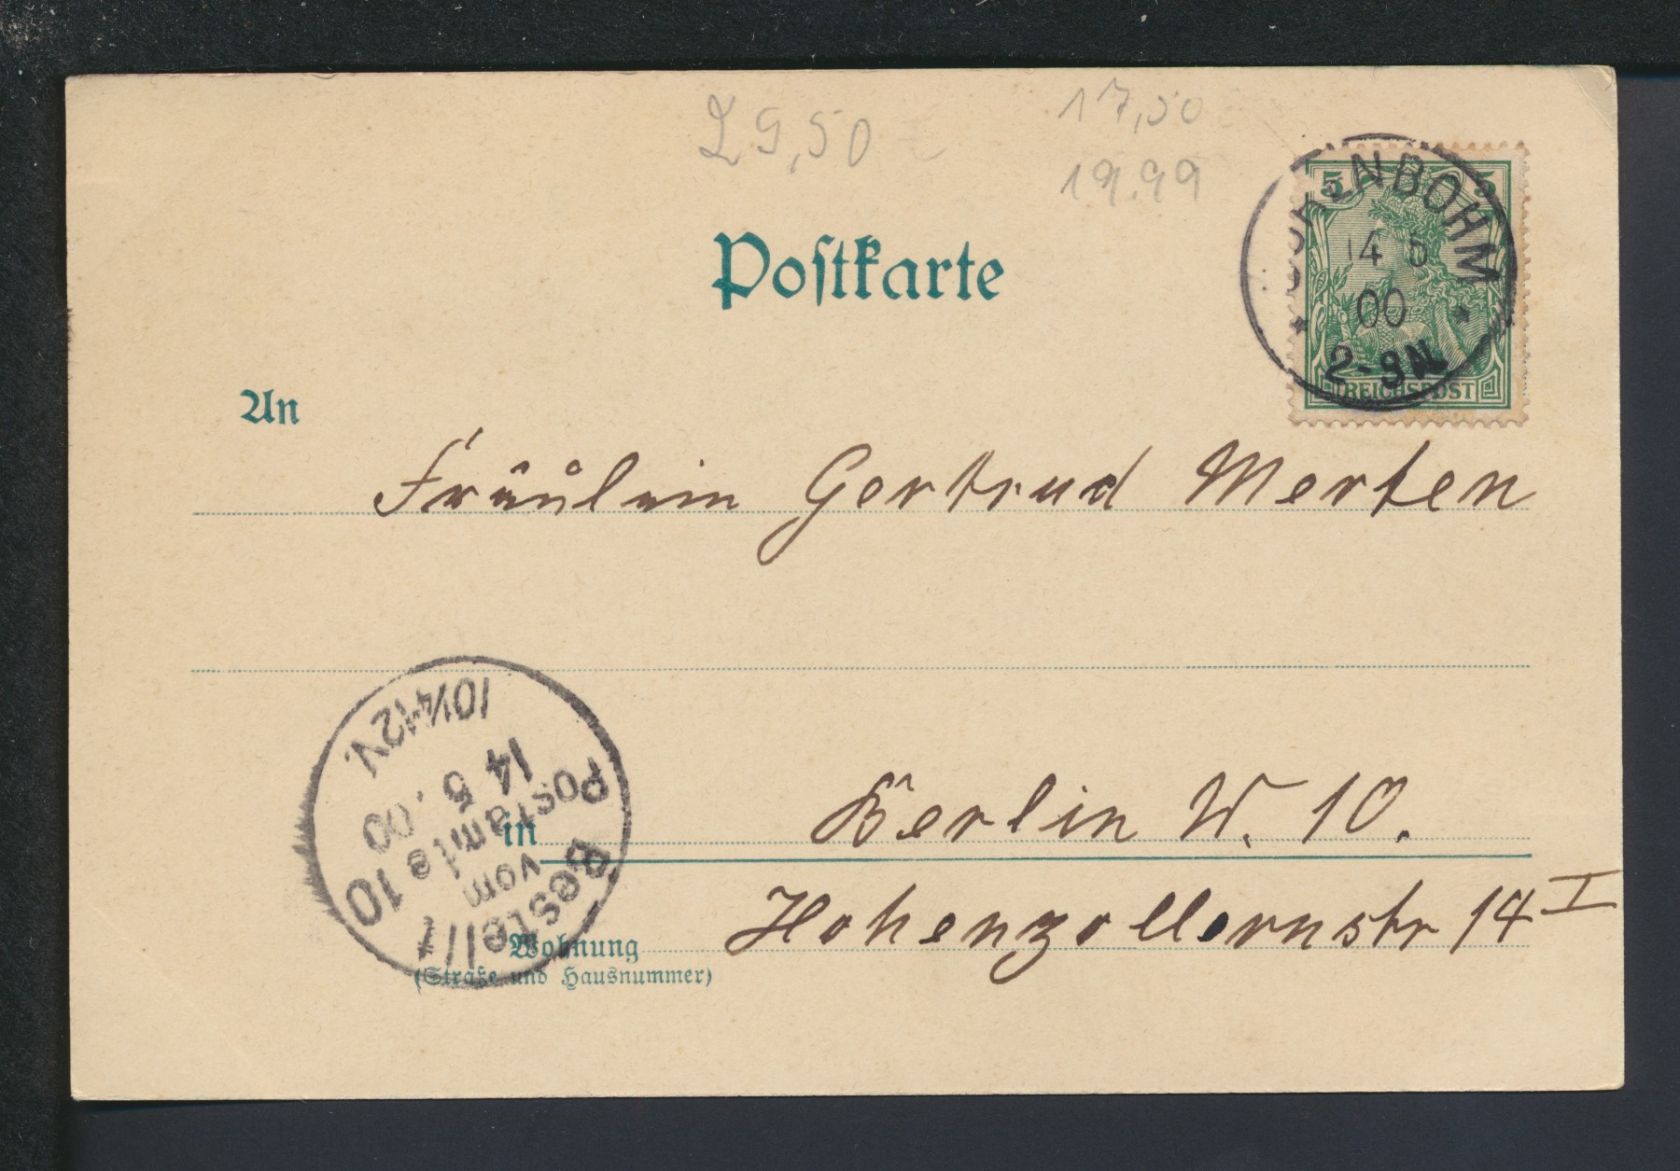 29,50
17,50
19.99
Postkarte
5 5
14 5
00
2-3N.
REICHSPOST
An
Fräulein Gertrud Merten
10¼-12V.
14 5.00
Bestellt
vom
Postamte 10
in Berlin W. 10.
Wohnung Hohenzollernstr 14 I
(Straße und Hausnummer)